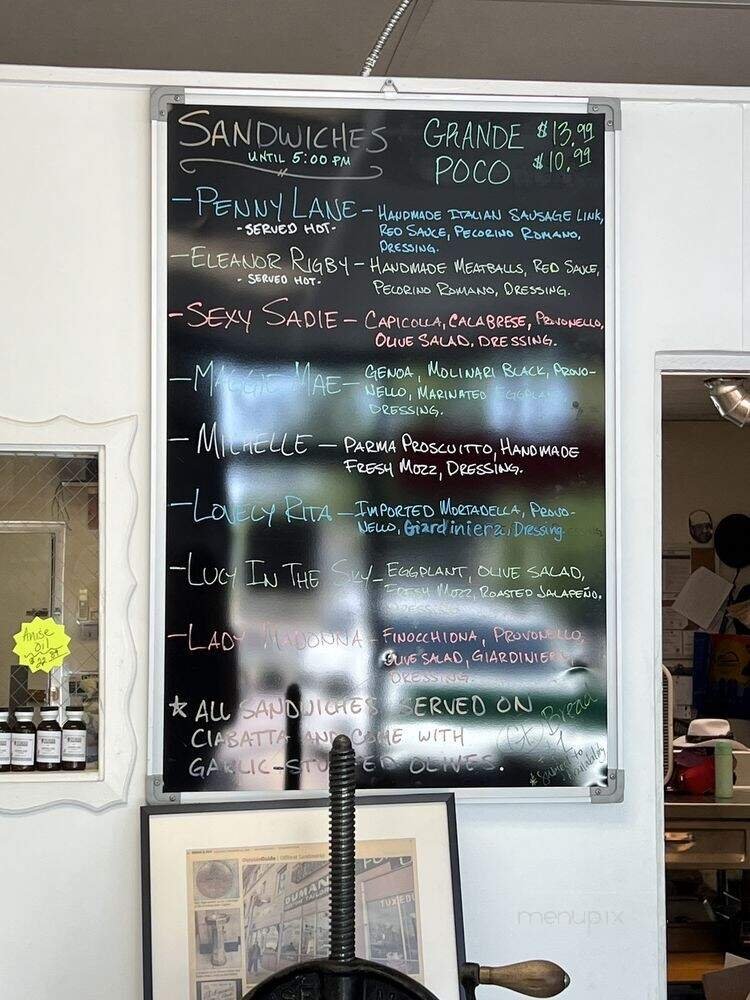 SANDWICHES GRANDE $13.99
UNTIL 5:00 PM POCO $10.99
- PENNY LANE - HANDMADE ITALIAN SAUSAGE LINK,
- SERVED HOT - RED SAUCE, PECORINO ROMANO,
DRESSING.
- ELEANOR RIGBY - HANDMADE MEATBALLS, RED SAUCE,
- SERVED HOT - PECORINO ROMANO, DRESSING.
- SEXY SADIE - CAPICOLLA, CALABRESE, PROVONELLO,
OLIVE SALAD, DRESSING.
- MAGGIE MAE - GENOA, MOLINARI BLACK, PROVO-
NELLO, MARINATED EGGPLANT
DRESSING.
- MICHELLE - PARMA PROSCUITTO, HANDMADE
FRESH MOZZ, DRESSING.
- LOVELY RITA - IMPORTED MORTADELLA, PROVO-
NELLO, Giardiniera, Dressing
- LUCY IN THE SKY - EGGPLANT, OLIVE SALAD,
FRESH MOZZ, ROASTED JALAPEÑO,
DRESSING
- LADY MADONNA - FINOCCHIONA, PROVONELLO,
OLIVE SALAD, GIARDINIERA
DRESSING.
☆ ALL SANDWICHES SERVED ON
CIABATTA AND COME WITH
GARLIC-STUFFED OLIVES.
Bread
Anise
Oil
menupix